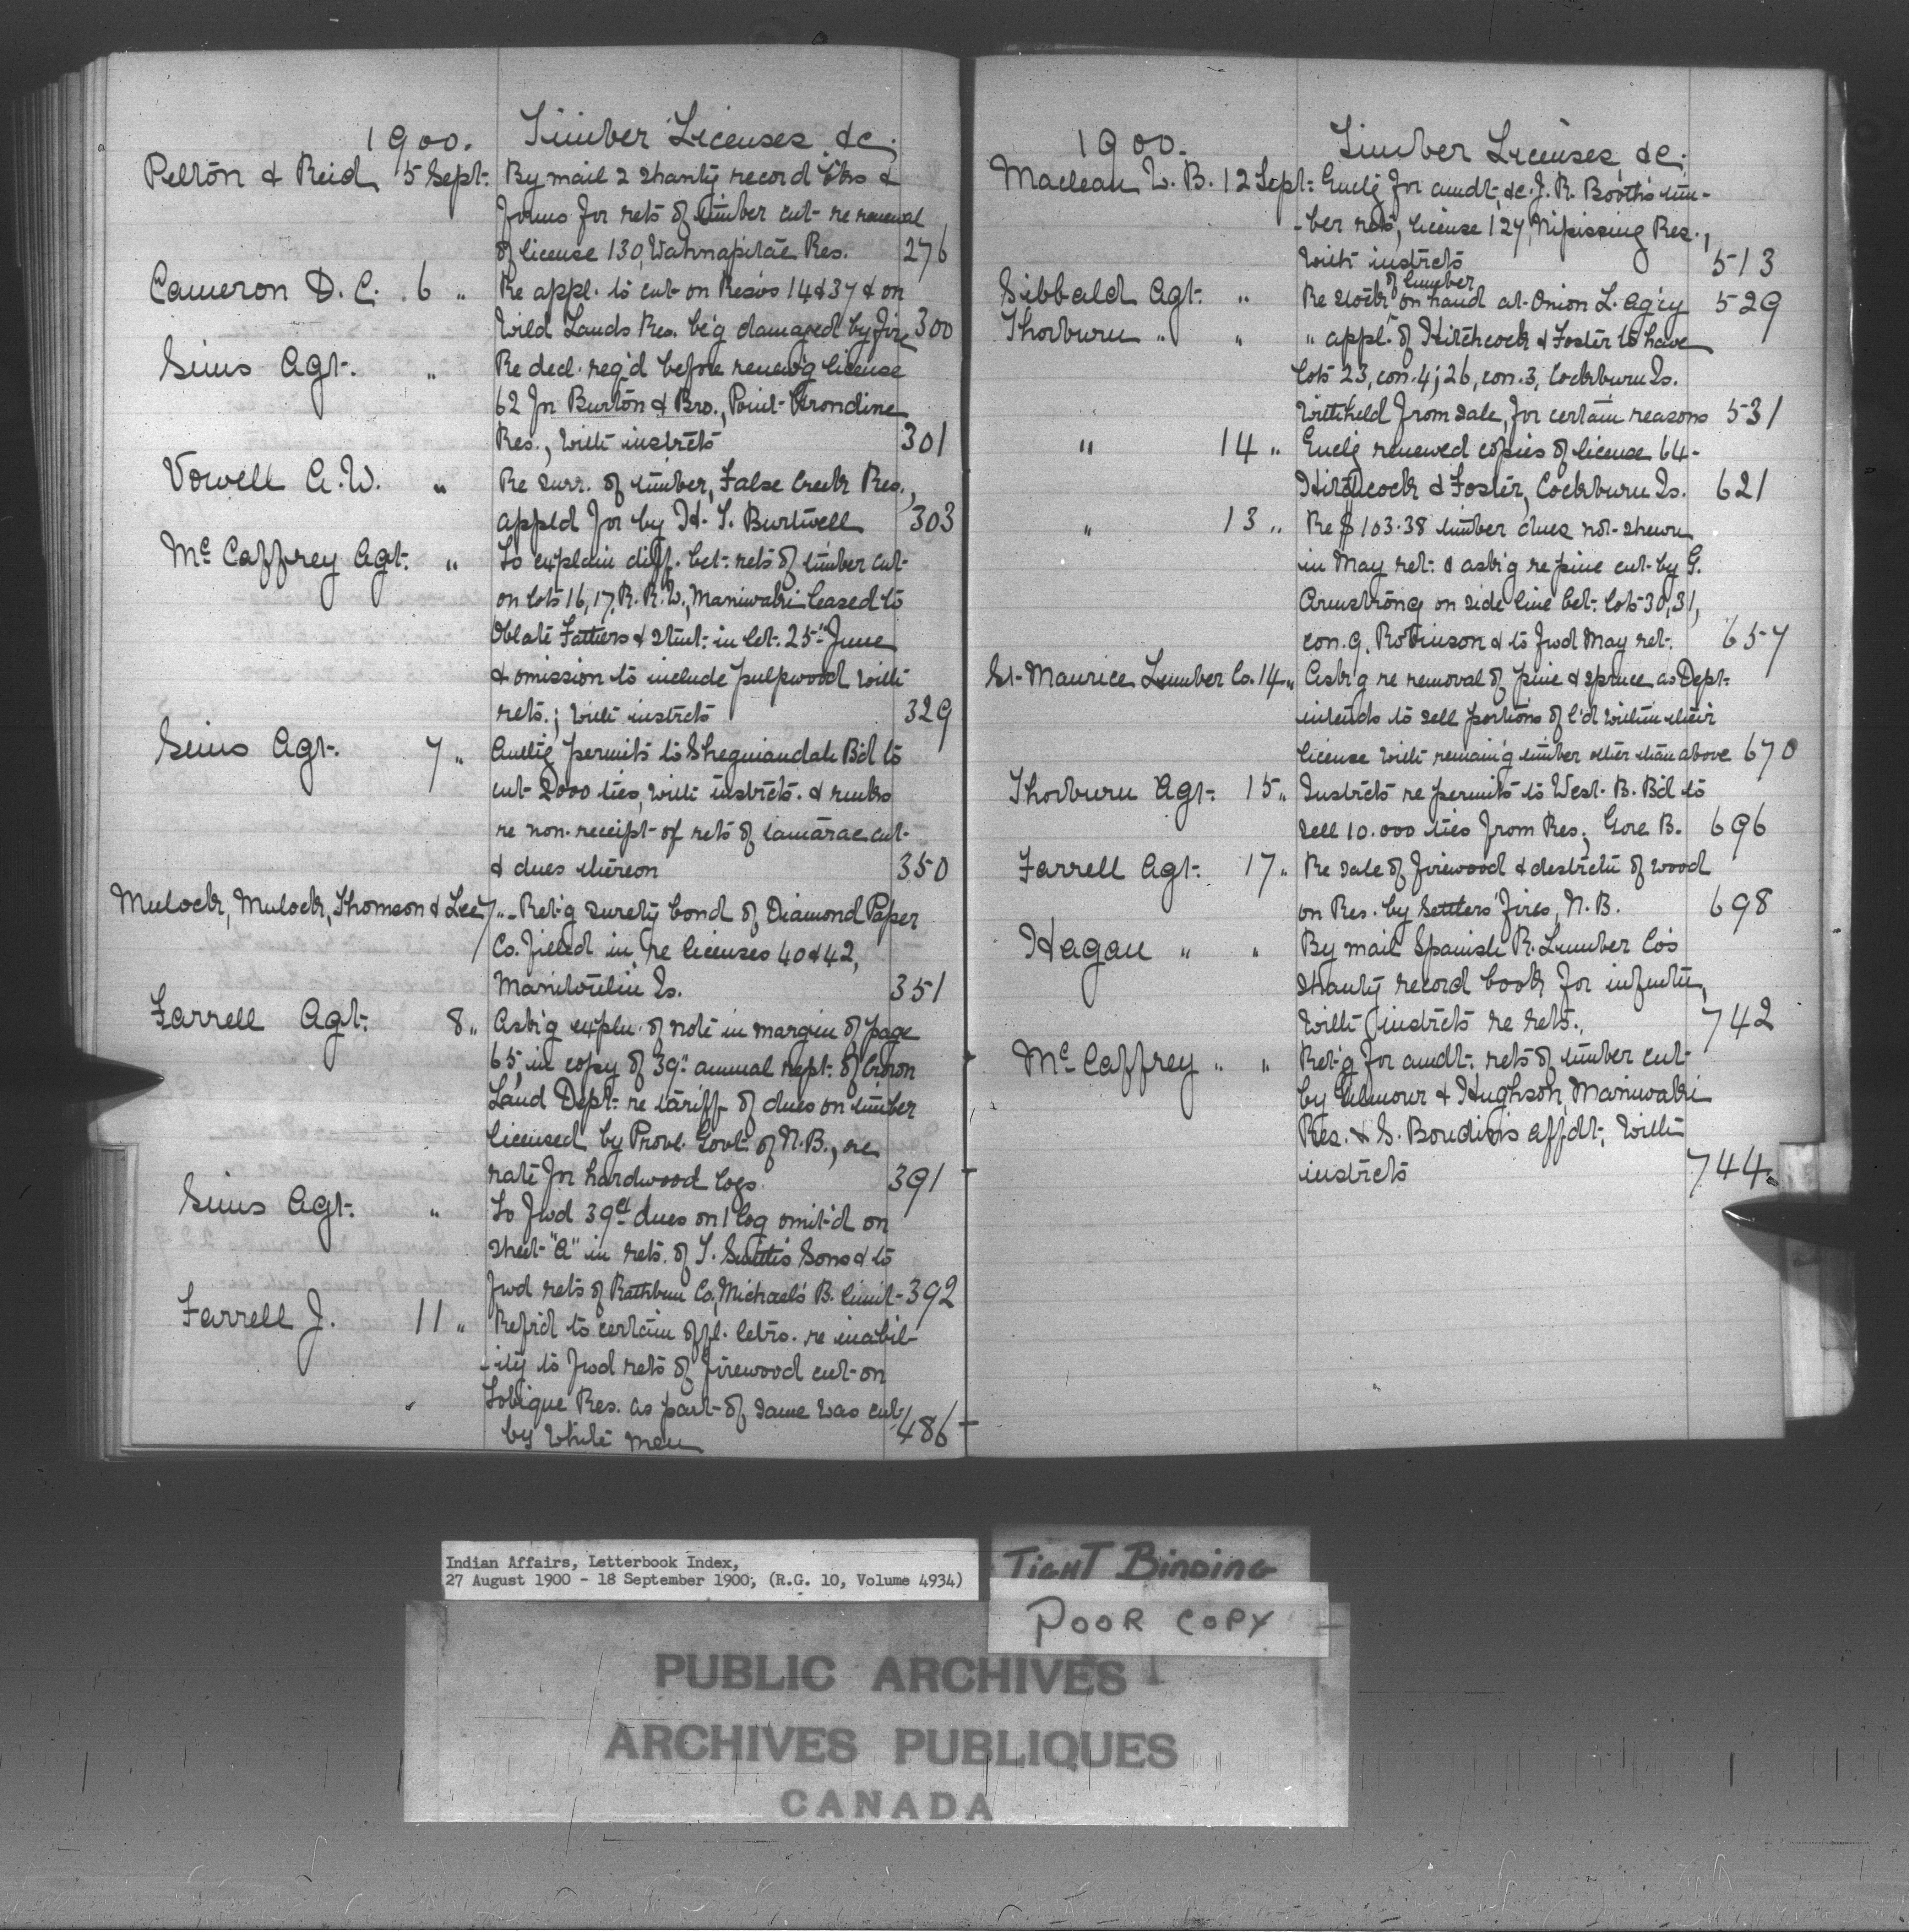 1900. Timber Licenses &c.
Pelton & Reid 5 Sept. By mail 2 shanty record bks &
forms for rets of timber cut re renewal
of license 130, Wahnapitae Res. 276
Cameron D. C. 6 " Re appl. to cut on Res's 14 & 37 & on
Wild Lands Res. be'g damaged by fire 300
Sims Agt. " Re decl. req'd before renew'g license
62 for Burton & Bro., Point Grondine
Res., with instrcts 301
Vowell A. W. " Re surr. of timber, False Creek Res.,
appl'd for by H. T. Burtwell 303
McCaffrey Agt. " To explain diff. bet. rets of timber cut
on lots 16, 17, R. R. W., Maniwaki leased to
Oblate Fathers & stmt. in let. 25th June
& omission to include pulpwood with
rets.; with instrcts 329
Sims Agt. 7 " Auth'g permits to Sheguiandah B'd to
cut 2000 ties, with instrcts. & rmks
re non-receipt of rets of tamarac cut
& dues thereon 350
Mulock, Mulock, Thomson & Lee 7 " Ret'g surety bond of Diamond Paper
Co. filled in re licenses 40 & 42,
Manitoulin Is. 351
Farrell Agt. 8 " Ask'g expln. of note in margin of page
65, in copy of 39th annual rept. of Crown
Land Dept. re tariff of dues on timber
licensed by Provl. Govt. of N. B., re
rate for hardwood logs 391
Sims Agt. " To fwd 39c dues on 1 log omit'd on
sheet "A" in rets. of T. Smith's Sons & to
fwd rets of Rathbun Co., Michael's B. limit 392
Farrell J. 11 " Refr'd to certain offl. letrs. re inabil-
-ity to fwd rets of firewood cut on
Tobique Res. as part of same was cut
by white men 486
1900. Timber Licenses, &c.
Maclean W. B. 12 Sept. Encl'g for amdt. &c. J. R. Booth's tim-
-ber rets, license 127, Nipissing Res.,
with instrcts 513
Sibbald Agt. " Re stock of lumber on hand at Onion L. Ag'cy 529
Thorburn " " " appl. of Hitchcock & Foster to have
lots 23, con. 4; 26, con. 3, Cockburn Is.
withheld from sale, for certain reasons 531
" 14 " Encl'g renewed copies of license 64
Hitchcock & Foster, Cockburn Is. 621
" 13 " Re $103.38 timber dues not shewn
in May ret. & ask'g re pine cut by G.
Armstrong on side line bet. lots 30, 31,
con. 9, Robinson & to fwd May ret. 657
St. Maurice Lumber Co. 14 " Ask'g re removal of pine & spruce as Dept.
intends to sell portions of l'd within their
license with remain'g timber other than above 670
Thorburn Agt. 15 " Instrcts re permits to West B. B'd to
sell 10.000 ties from Res., Gore B. 696
Farrell Agt. 17 " Re sale of firewood & destrctn of wood
on Res. by settlers' fires, N. B. 698
Hagan " " By mail Spanish R. Lumber Co's
shanty record book for infmtn,
with instrcts re rets. 742
McCaffrey " " Ret'g for amdt. rets of timber cut
by Gilmour & Hughson, Maniwaki
Res. & S. Boudin's affdt., with
instrcts 744
Indian Affairs, Letterbook Index,
27 August 1900 - 18 September 1900, (R.G. 10, Volume 4934)
TIGHT BINDING
POOR COPY
PUBLIC ARCHIVES
ARCHIVES PUBLIQUES
CANADA